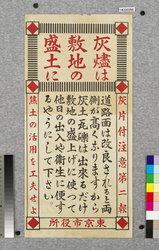 灰燼は
敷地の
盛土に
灰片付注意第二報
道路面は改良されると両
側が高くなりますから
灰や瓦礫は出来るだけ
敷地の盛り上げに使って
他日の出入や衛生に便す
るやうにして下さい
焦土の活用を工夫せよ
東京市役所